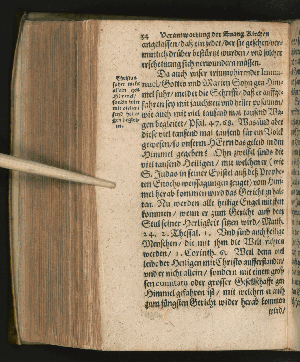 54 Verantwortung der Evang. Kirchen
angelassen / daß ein jeder / der sie gesehen / ver-
nünlich drüber bestürtzt worden / und solcher
erscheinung sich verwundern müssen.
Da auch unser triumphirender Imma-
nuel / Gottes und Marien Sohn gen Him-
mel fuhr / meldet die Schrifft / daß er auffge-
fahren sey mit jauchtzen und heller posaunen /
wie auch mit viel tausend mal tausend Wa-
gen begleitet / Psal. 47. 68. Was sind aber
diese viel tausend mal tausend für ein Volck
gewesen / so unserm HErrn das geleit in den
Himmel gegeben? Ohn zweifel sinds die
viel tausend Heiligen / mit welchen er (wie
S. Judas in seiner Epistel auß des Prophe-
ten Enochs weissagungen zeiget) vom Him-
mel herab kommen wird das Gericht zu hal-
ten. Nu werden alle heilige Engel mit ihm
kommen / wenn er zum Gericht auff dem
Stul seiner Herrligkeit sitzen wird / Matth.
24. 2. Thessal. 1. Und sind auch heilige
Menschen / die mit ihm die Welt richten
werden / 1. Corinth. 6. Weil denn viel
leiber der Heiligen mit Christo aufferstanden /
und er nicht allein / sondern mit einem gros-
sen comitatu oder grosser Gesellschafft gen
Himmel gefahren ist / mit welchen er auch
zum jüngsten Gericht wider herab kommen
wird /
Christus
fahre nicht
allein gen
Himmel /
sondern wird
mit vielen